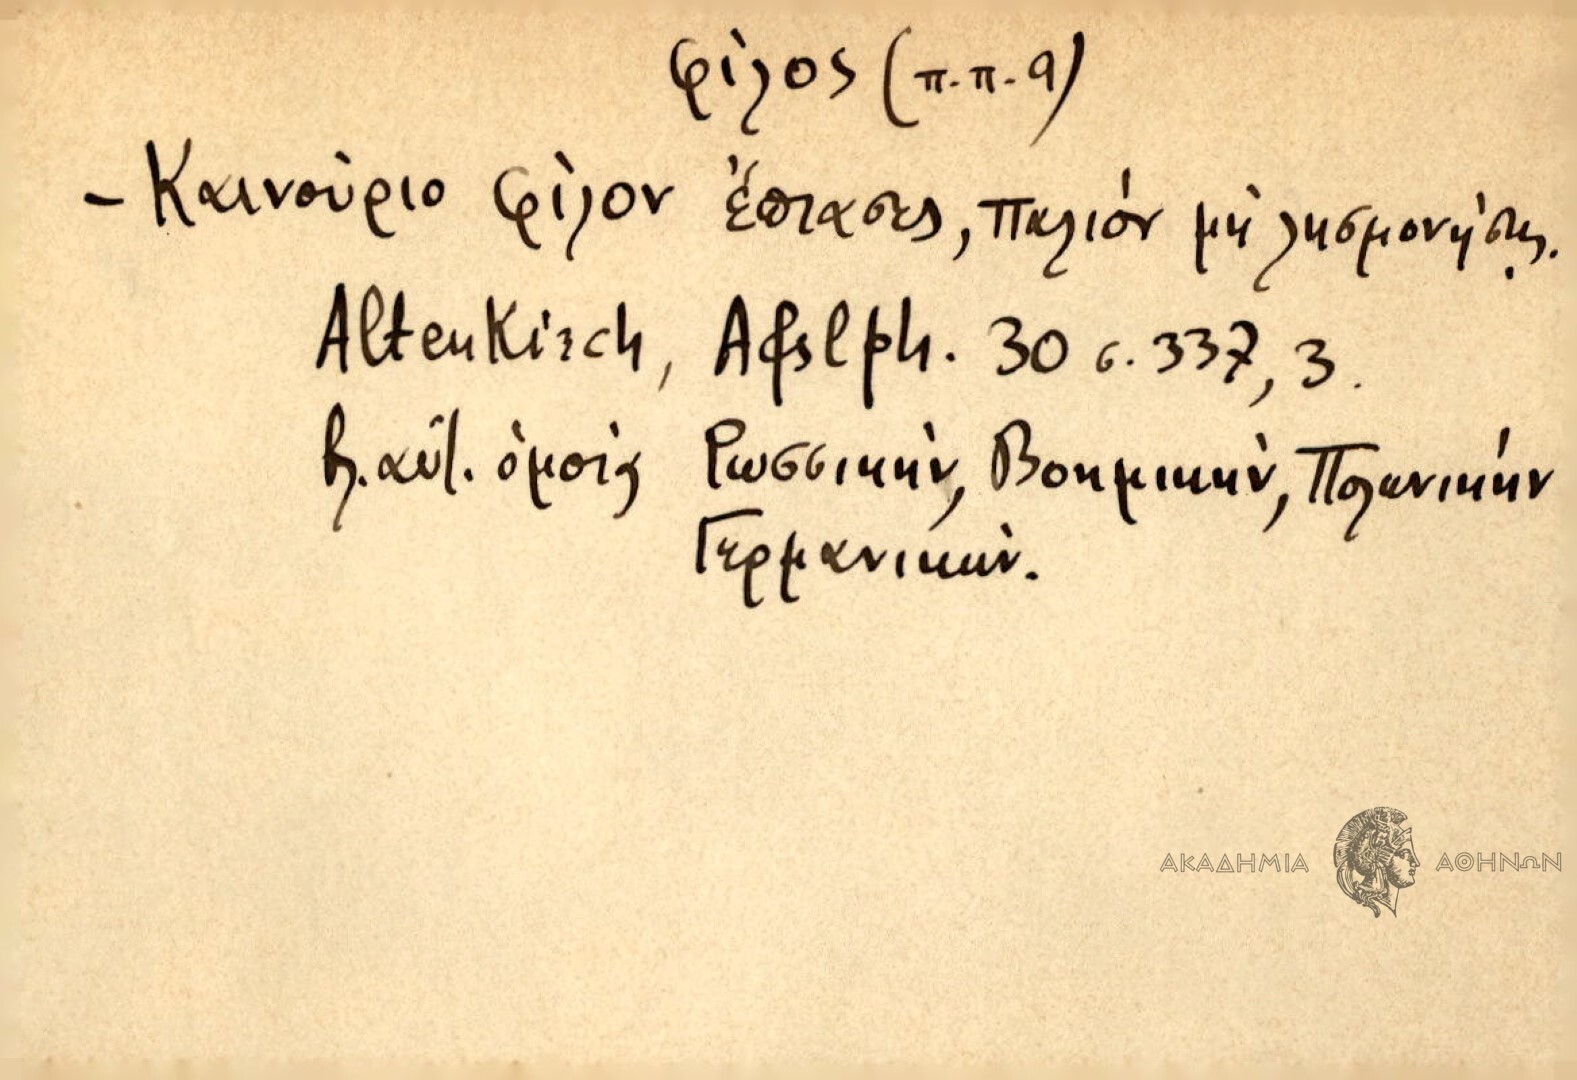 φίλος (π.π. 9)
- Καινούριο φίλον ἔπιασες, παλιὸν μὴ λησμονήσῃς.
Altenkirch, Afslph. 30 σ. 337, 3.
βλ. αὐτ. ὁμοίας Ρωσσικὴν, Βοημικὴν, Πολωνικὴν
Γερμανικὴν.
ΑΚΑΔΗΜΙΑ ΑΘΗΝΩΝ